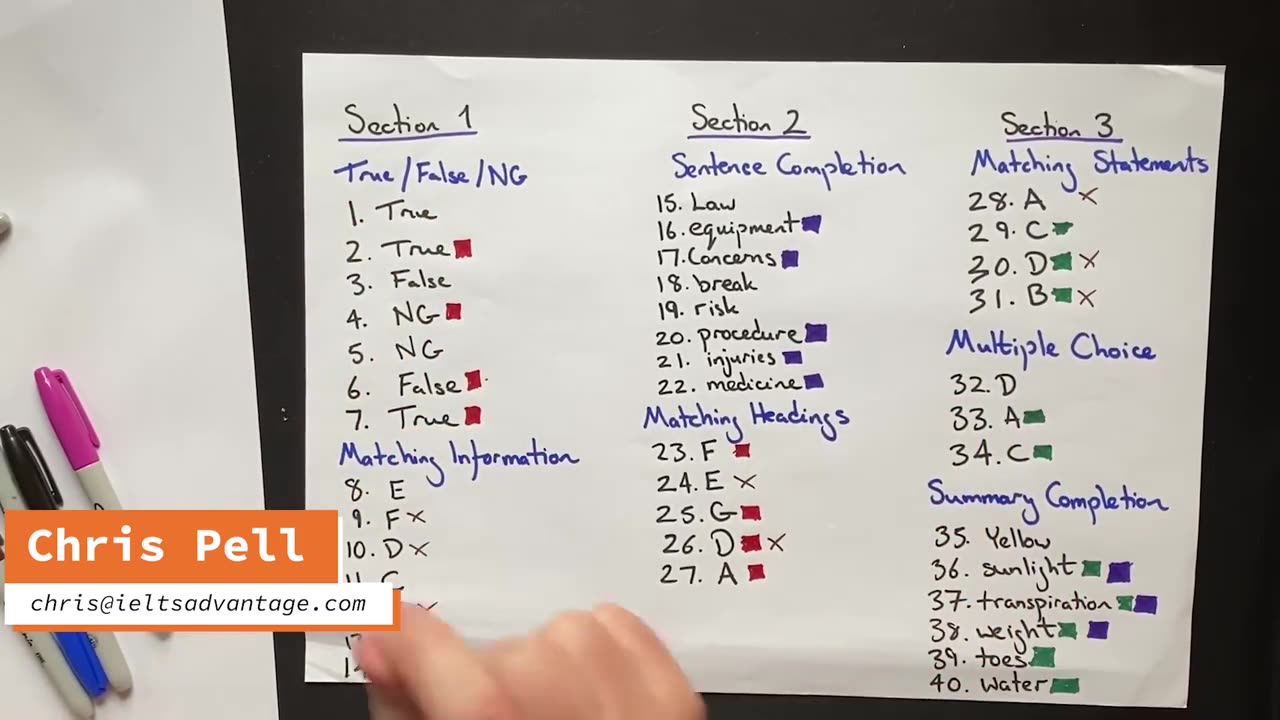 Section 1
True/False/NG
1. True
2. True
3. False
4. NG
5. NG
6. False
7. True
Matching Information
8. E
9. F ×
10. D ×
Section 2
Sentence Completion
15. Law
16. equipment
17. Concerns
18. break
19. risk
20. procedure
21. injuries
22. medicine
Matching Headings
23. F
24. E ×
25. G
26. D ×
27. A
Section 3
Matching Statements
28. A ×
29. C
30. D ×
31. B ×
Multiple Choice
32. D
33. A
34. C
Summary Completion
35. Yellow
36. sunlight
37. transpiration
38. weight
39. toes
40. water
Chris Pell
chris@ieltsadvantage.com